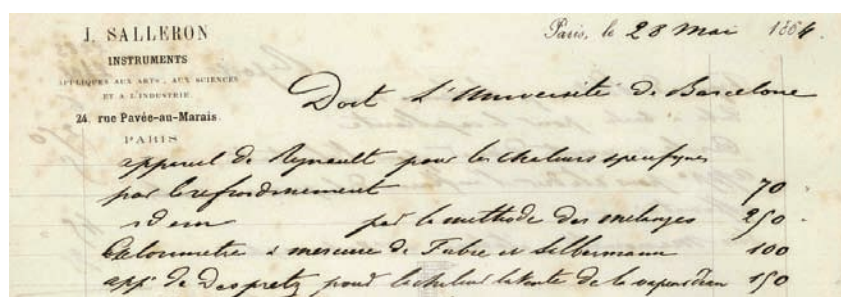 J. SALLERON
INSTRUMENTS
APPLIQUÉS AUX ARTS, AUX SCIENCES
ET A L'INDUSTRIE.
24, rue Pavée-au-Marais.
PARIS
Paris, le 28 Mai 1864.
Doit L'Université de Barcelone
appareil de Regnault pour les chaleurs specifiques
par le refroidissement 70
idem par la methode des melanges 250
Calorimetre à mercure de Fabre et Silbermann 100
app! de Despretz pour la chaleur latente de la vaporisation 150